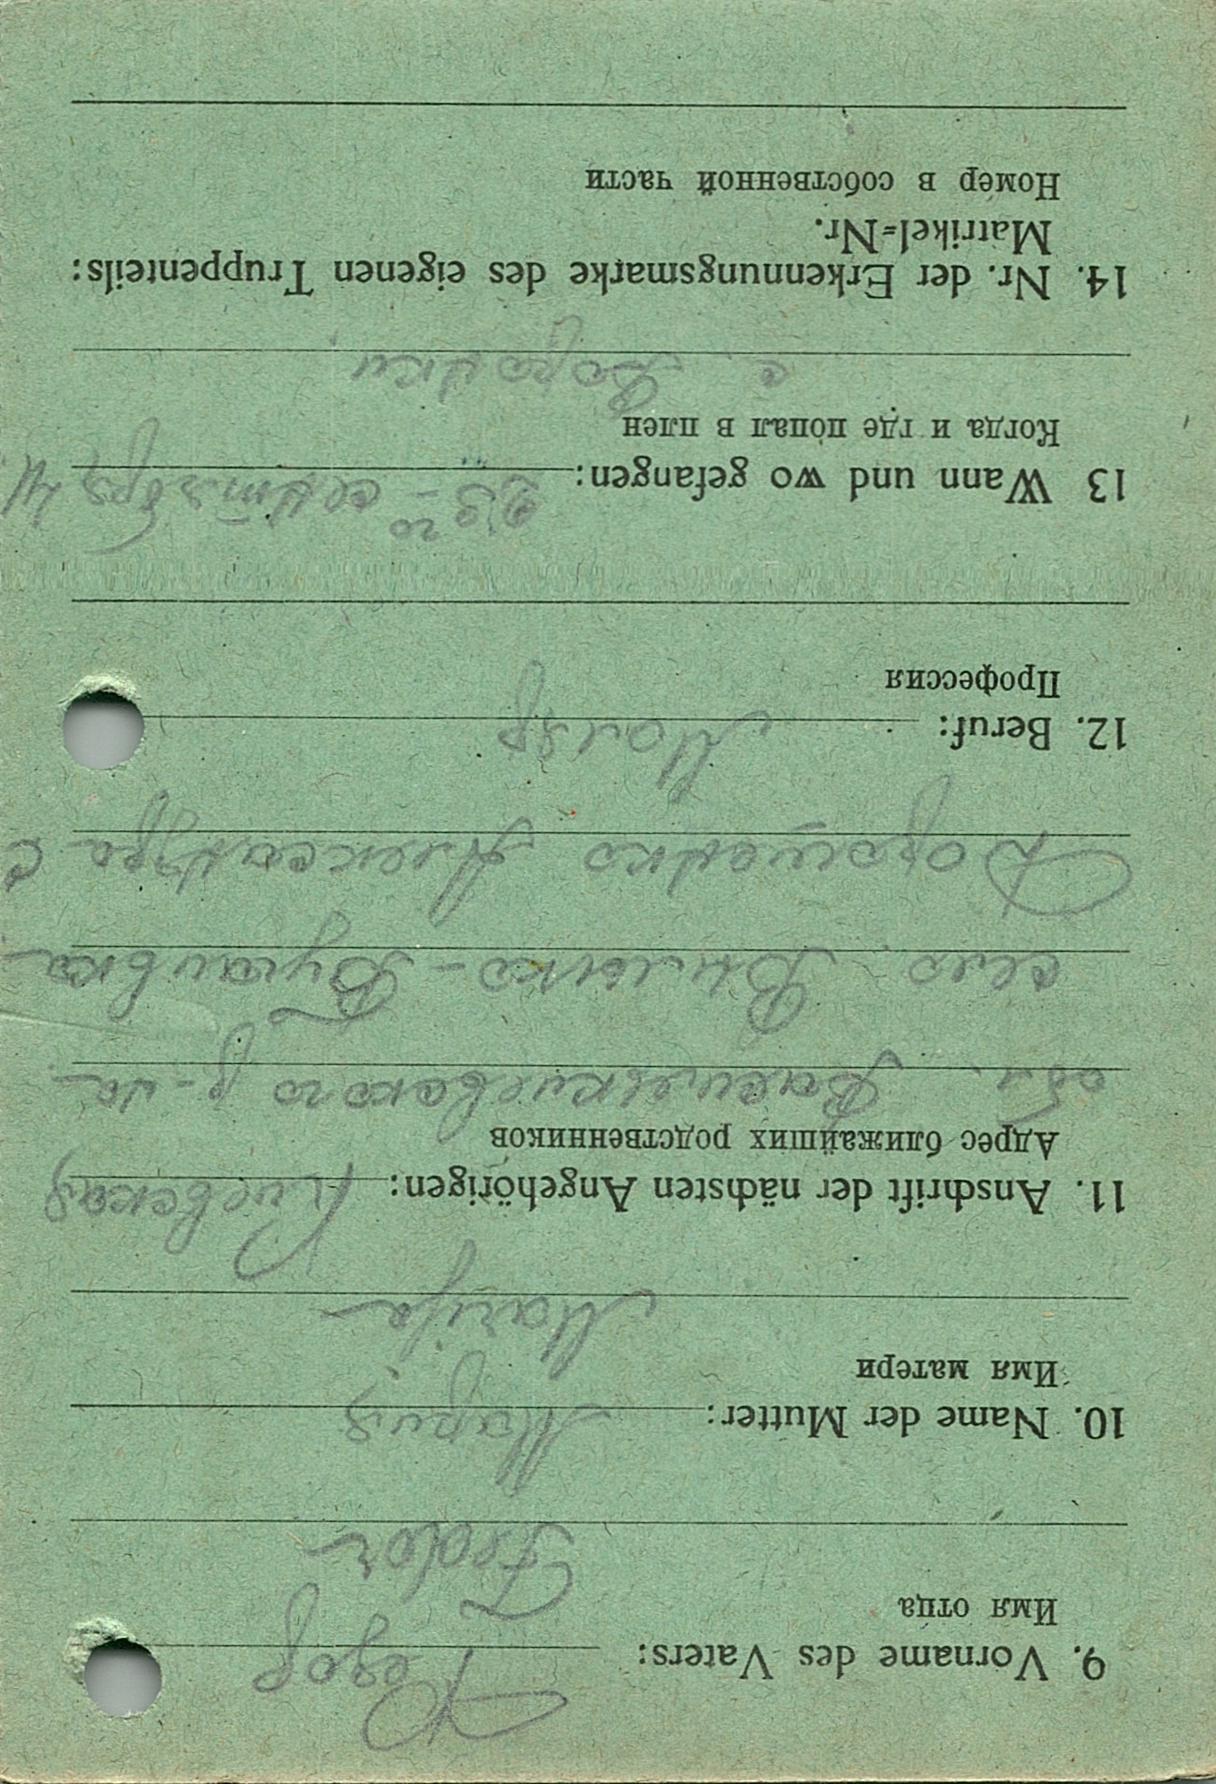 9. Vorname des Vaters: Федор
Имя отца
Fedor
10. Name der Mutter: Мария
Имя матери
Marija
11. Anschrift der nächsten Angehörigen: Киевская
Адрес ближайших родственников
обл. р-на
село Вильно-
Дорошенко Александра С
12. Beruf: Маляр
Профессия
13 Wann und wo gefangen: 23го - сентябрь 41
Когда и где попал в плен
с.
14. Nr. der Erkennungsmarke des eigenen Truppenteils:
Matrikel=Nr.
Номер в собственной части